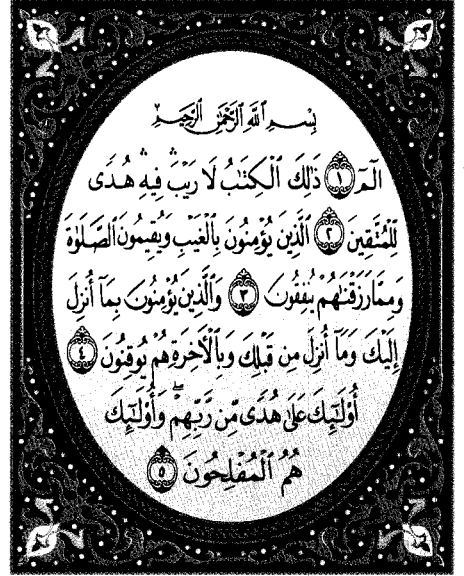 بِسْمِ اللَّهِ الرَّحْمَٰنِ الرَّحِيمِ
الٓمٓ ١ ذَٰلِكَ ٱلْكِتَٰبُ لَا رَيْبَ ۛ فِيهِ ۛ هُدًى
لِّلْمُتَّقِينَ ٢ ٱلَّذِينَ يُؤْمِنُونَ بِٱلْغَيْبِ وَيُقِيمُونَ ٱلصَّلَوٰةَ
وَمِمَّا رَزَقْنَٰهُمْ يُنفِقُونَ ٣ وَٱلَّذِينَ يُؤْمِنُونَ بِمَآ أُنزِلَ
إِلَيْكَ وَمَآ أُنزِلَ مِن قَبْلِكَ وَبِٱلْءَاخِرَةِ هُمْ يُوقِنُونَ ٤
أُو۟لَٰٓئِكَ عَلَىٰ هُدًى مِّن رَّبِّهِمْ ۖ وَأُو۟لَٰٓئِكَ
هُمُ ٱلْمُفْلِحُونَ ٥